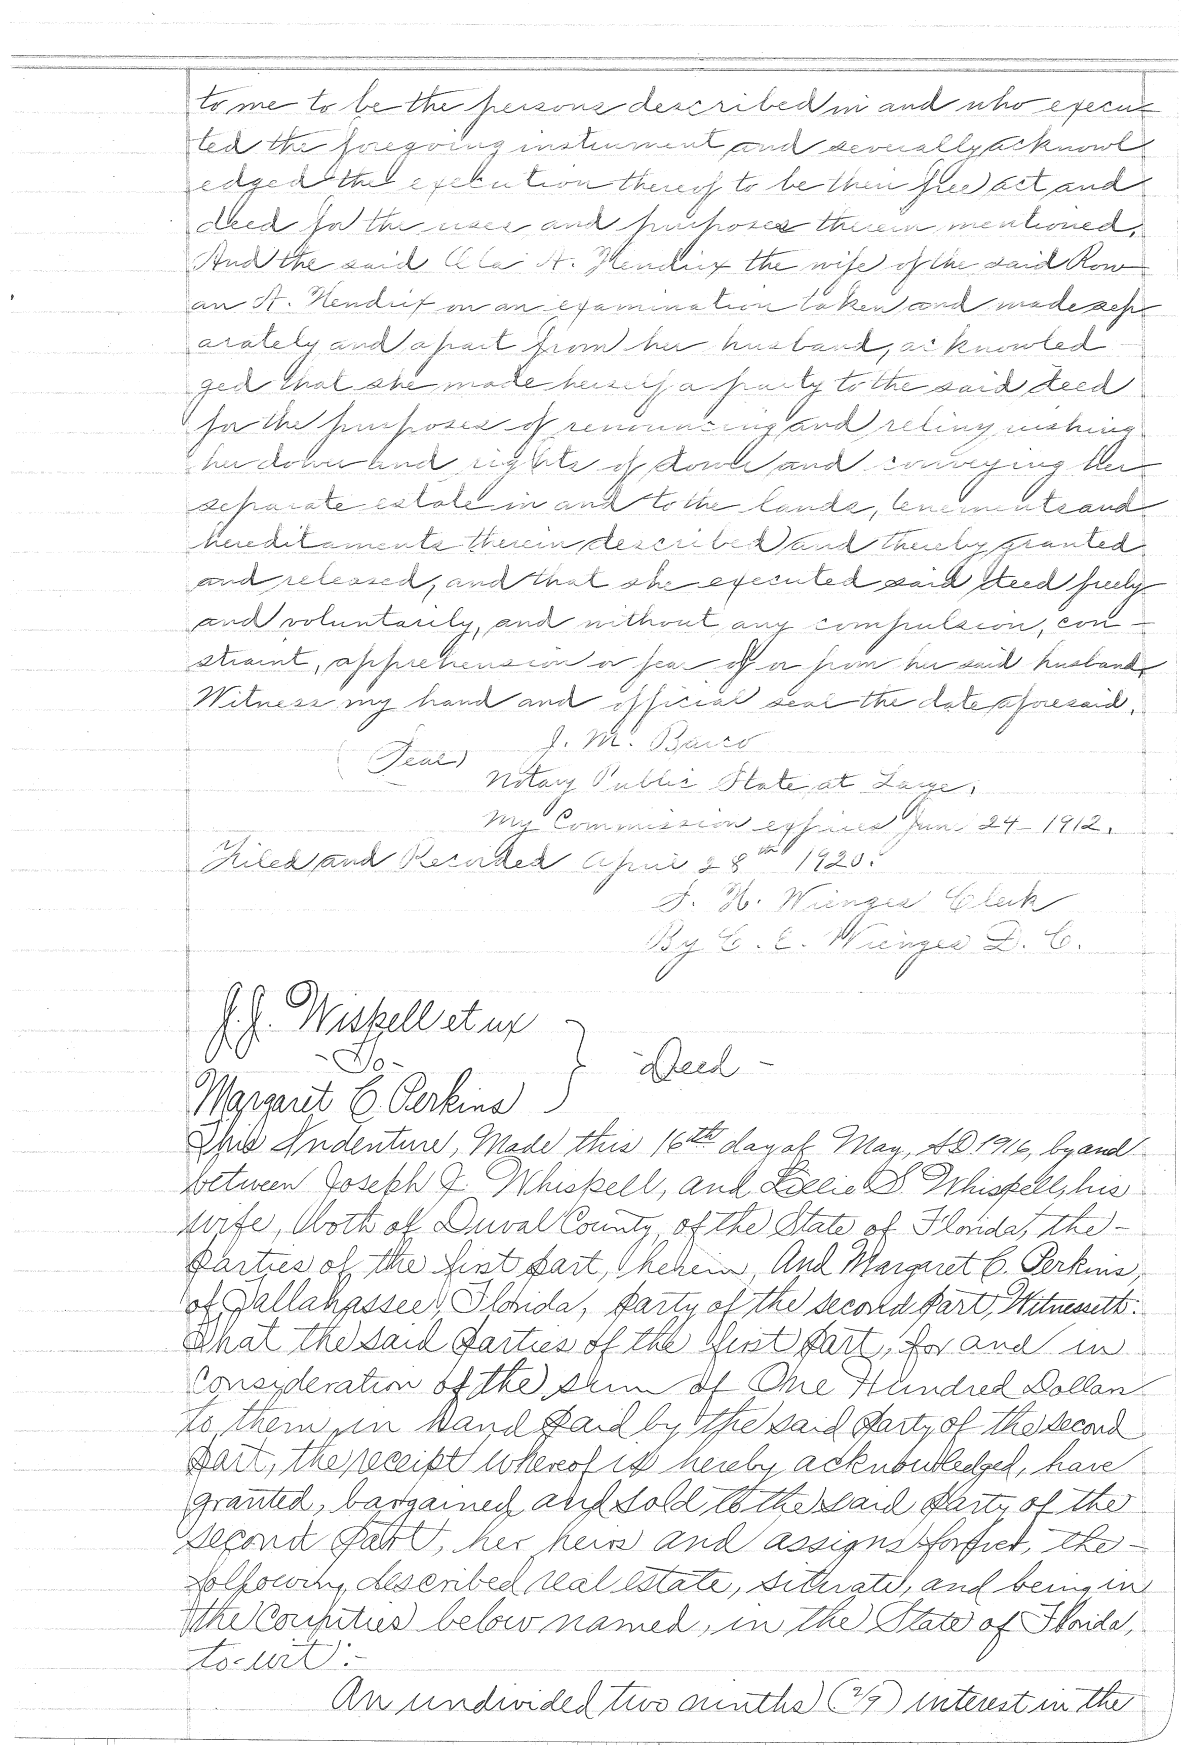 to me to be the persons described in and who execu-
ted the foregoing instrument and severally acknowl
edged the execution thereof to be their free act and
deed for the uses and purposes therein mentioned.
And the said Ola A. Hendrix the wife of the said Row-
an A. Hendrix on an examination taken and made sep
arately and apart from her husband, acknowled
ged that she made herself a party to the said deed
for the purposes of renouncing and relinquishing
her dower and rights of dower and conveying her
separate estate in and to the lands, tenements and
hereditaments therein described and thereby granted
and released, and that she executed said deed freely
and voluntarily, and without any compulsion, con-
straint, apprehension or fear of or from her said husband.
Witness my hand and official seal the date aforesaid.
(Seal) J. M. Barco
Notary Public State at Large.
My Commission expires Jun 24 - 1912.
Filed and Recorded April 28th 1920.
S. H. Wienges Clerk
By C. E. Wienges D. C.
J. J. Wispell et ux
-To- } -Deed-
Margaret C. Perkins
This Indenture, Made this 16th day of May, AD 1916, by and
between Joseph J. Whispell, and Lillie S. Whispell, his
wife, both of Duval County, of the State of Florida, the-
parties of the first part, herein, And Margaret C. Perkins,
of Tallahassee, Florida, party of the second part, Witnesseth:
That the said parties of the first part, for and in
consideration of the sum of One Hundred Dollars
to them in hand paid by the said party of the second
part, the receipt whereof is hereby acknowledged, have
granted, bargained and sold to the said party of the
second part, her heirs and assigns forever, the-
following described real estate, situate, and being in
the Counties below named, in the State of Florida,
to-wit:-
An undivided two ninths (2/9) interest in the